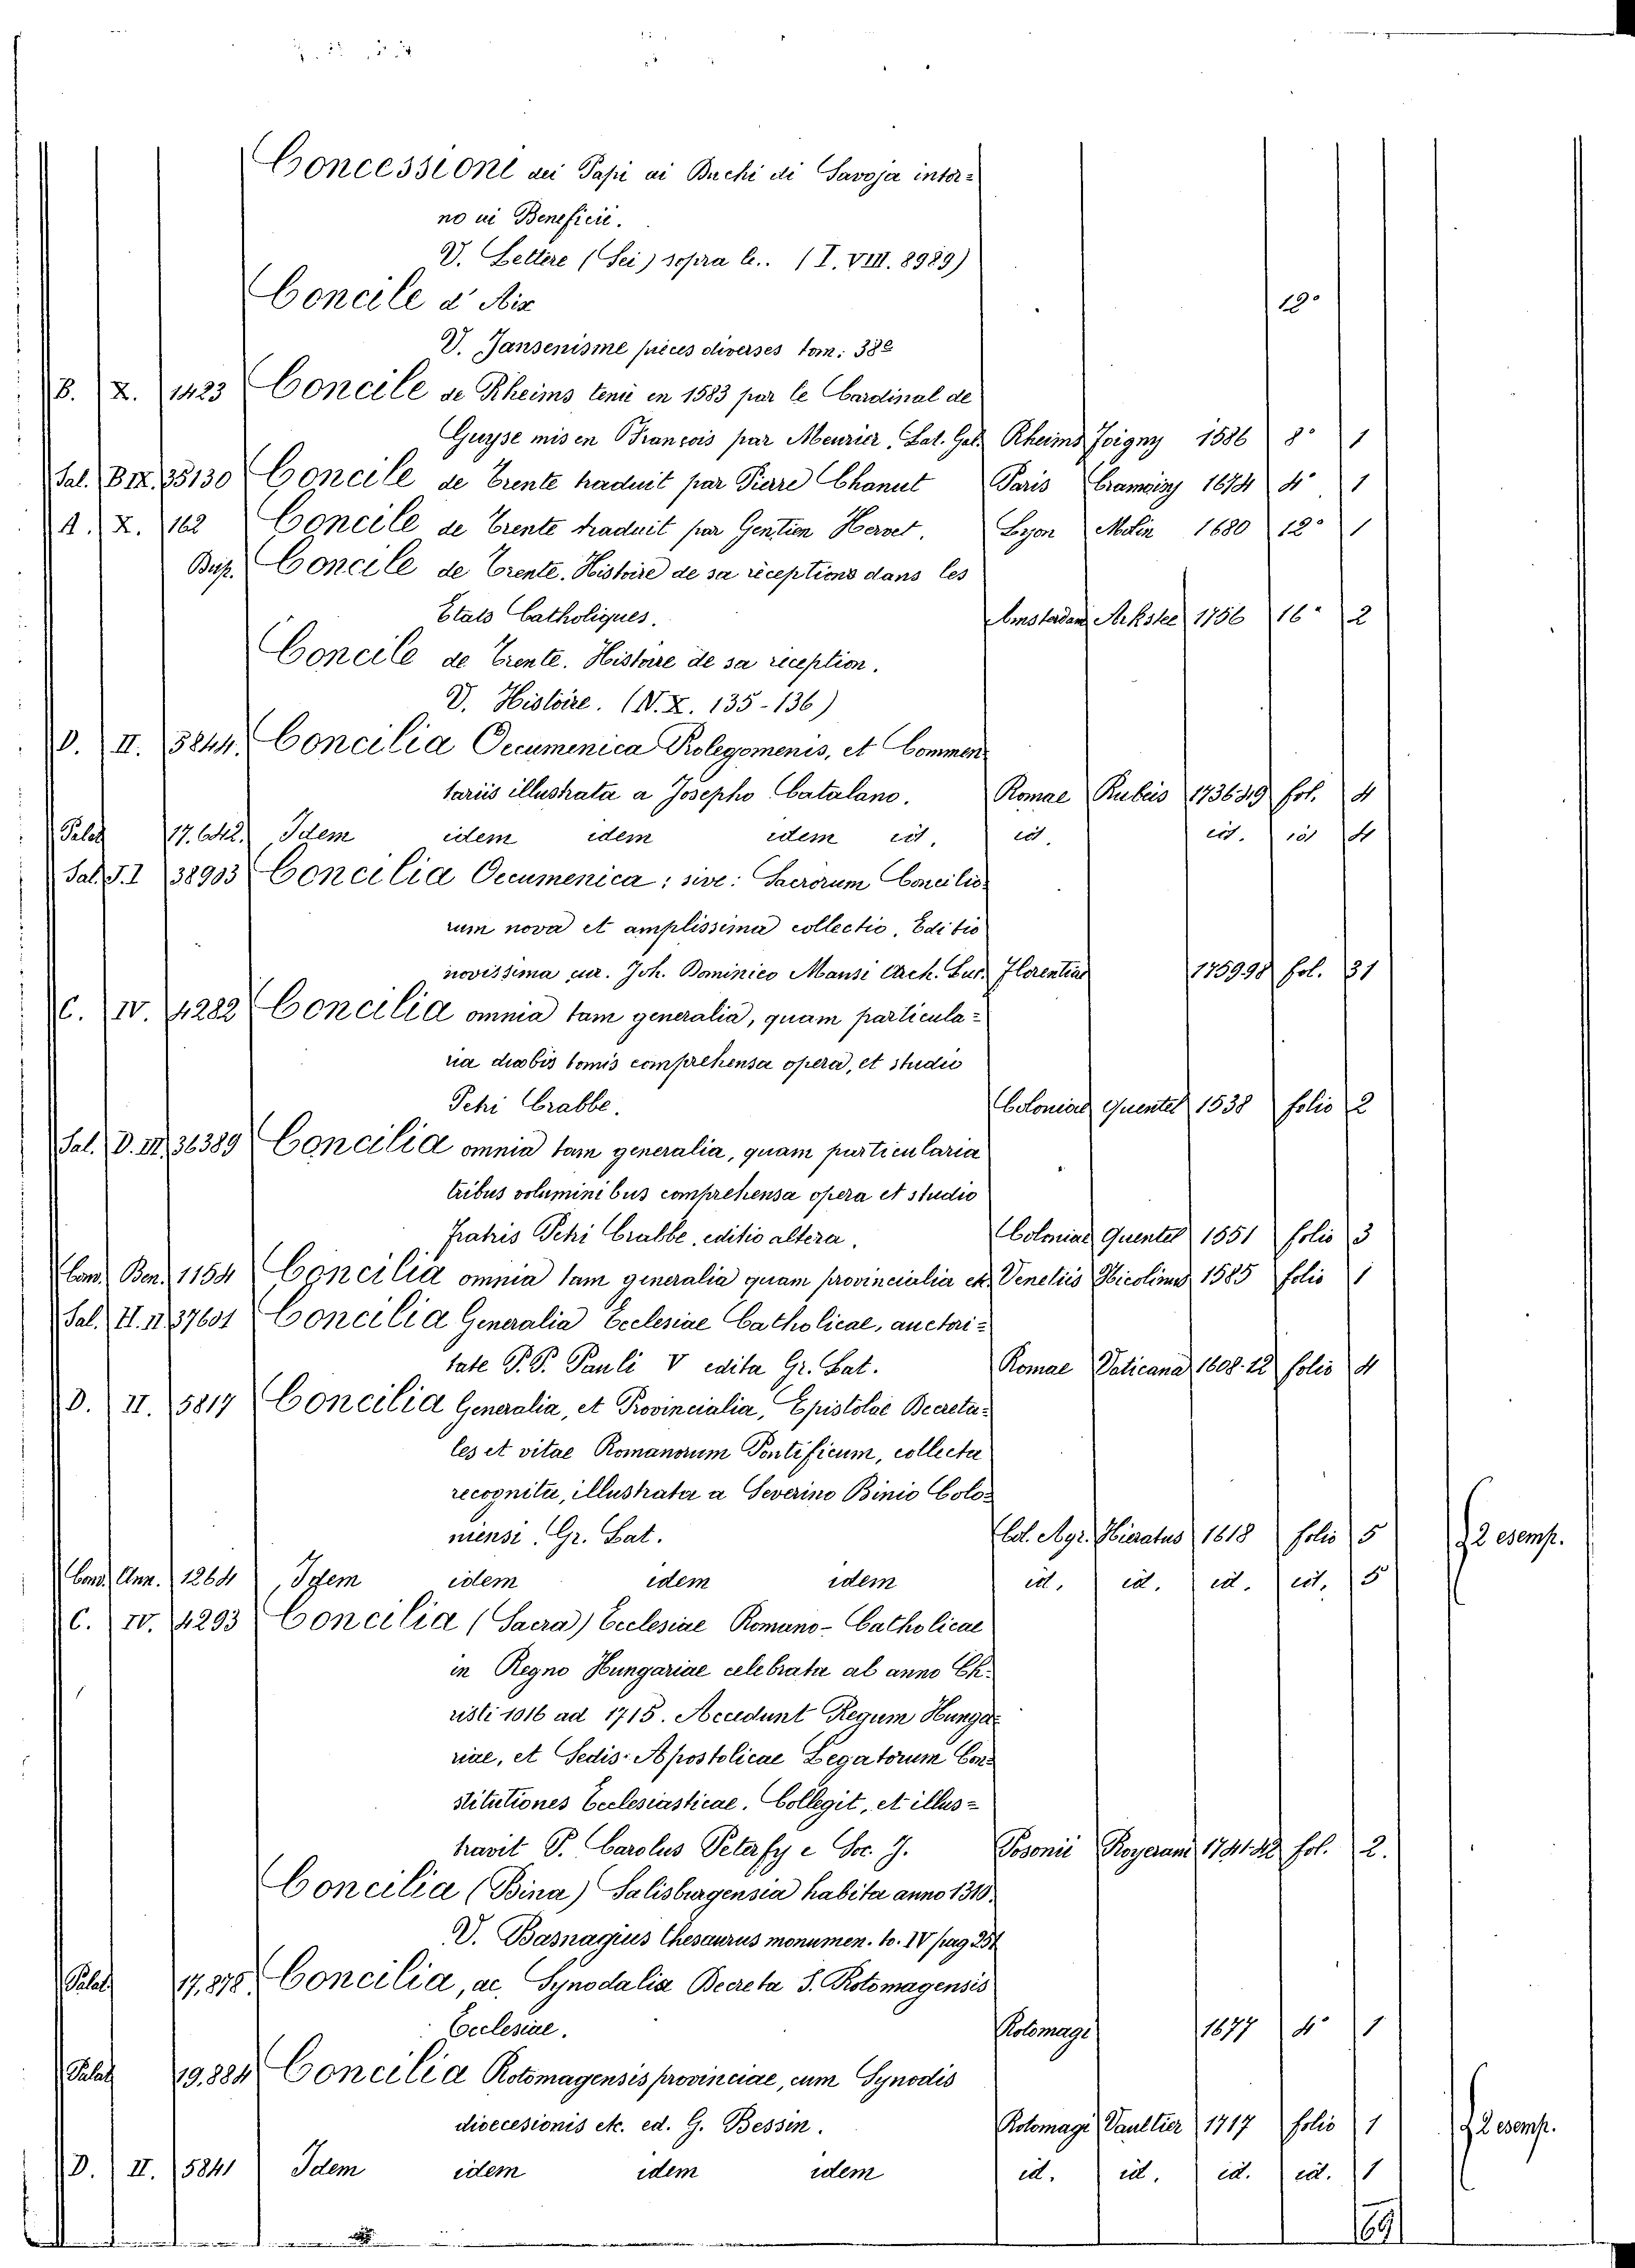 Concessioni dei Papi ai Duchi di Savoja intor=
no ai Beneficii.
V. Lettere (Sei) sopra le.. (I. VIII. 8989)
Concile d'Aix 12°
V. Jansenisme pièces diverses tom: 38e
B. X. 1423 Concile de Rheims tenu en 1583 par le Cardinal de
Guyse mis en François par Meurier. Lat. Gal. Rheims Foigny 1586 8° 1
Sal. B IX. 35130 Concile de Trente traduit par Pierre Chanut Paris Cramoisy 1674 4° 1
A. X. 162 Concile de Trente traduit par Gentien Hervet. Lyon Molin 1680 12° 1
Concile de Trente. Histoire de sa réceptions dans les
Etats Catholiques. Amsterdam Arkstee 1756 16° 2
Concile de Trente. Histoire de sa réception.
V. Histoire. (N. X. 135-136)
D. II. 5844. Concilia Oecumenica Prolegomenis, et Commen
tariis illustrata a Josepho Catalano. Romae Rubeis 1736-49 fol. 4
Palat 17.642. Idem idem idem idem id. id. id. id 4
Sal. J. I 38903 Concilia Oecumenica; sive: Sacrorum Concilio
rum nova et amplissima collectio. Editio
novissima cur. Joh. Dominico Mansi Arch. Luc. Florentiae 1759-98 fol. 31
C. IV. 4282 Concilia omnia tam generalia, quam particula=
ria duobis tomis comprehensa opera, et studio
Petri Crabbe. Coloniae Quentel 1538 folio 2
Sal. D. III. 36389 Concilia omnia tam generalia, quam particularia
tribus voluminibus comprehensa opera et studio
Fratris Petri Crabbe, editio altera. Coloniae Quentel 1551 folio 3
Conv. Ben. 1154 Concilia omnia tam generalia quam provincialia etc. Venetiis Nicolinus 1585 folio 1
Sal. H. II 37601 Concilia Generalia Ecclesiae Catholicae, auctori=
tate P. P. Pauli V edita Gr. Lat. Romae Vaticana 1608-12 folio 4
D. II. 5817 Concilia Generalia, et Provincialia, Epistolae Decreta=
les et vitae Romanorum Pontificum, collecta
recognita, illustrata a Severino Binio Colo=
niensi. Gr. Lat. Col. Agr. Hieratus 1618 folio 5 2 esemp.
Conv. Ann. 1264 Idem idem idem idem id. id. id. id. 5
C. IV. 4293 Concilia (Sacra) Ecclesiae Romano-Catholicae
in Regno Hungariae celebrata ab anno Ch=
risti 1016 ad 1715. Accedunt Regum Hunga=
riae, et Sedis Apostolicae Legatorum Con=
stitutiones Ecclesiasticae. Collegit, et illus=
travit P. Carolus Peterfy e Soc. J. Posonii Royerani 1741-42 fol. 2.
Concilia (Bina) Salisburgensia habita anno 1310.
V. Basnagius Thesaurus monumen. to. IV pag 251
Palat 17.878 Concilia, ac Synodalia Decreta S. Rotomagensis
Ecclesiae. Rotomagi 1677 4° 1
Palat 19.884 Concilia Rotomagensis provinciae, cum Synodis
dioecesionis etc. ed. G. Bessin. Rotomagi Vaultier 1717 folio 1 2 esemp.
D. II. 5841 Idem idem idem idem id. id. id. id. 1
69